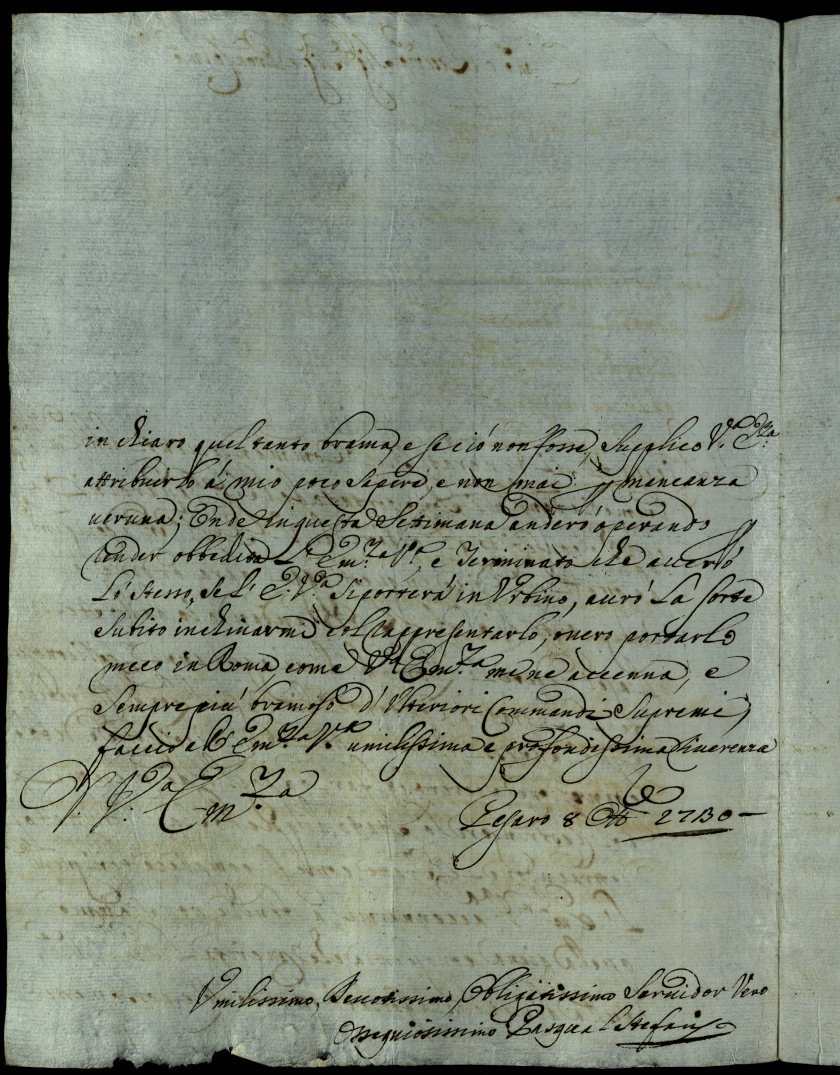 in chiaro quel tanto brama, e se ciò non fosse, supplico V.ª Em.za
attribuirlo á mio poco sapere, e non mai p mancanza
veruna; Onde in questa Settimana anderó operando p
render obbedita L' Em.za V.ª, e Terminato che averó
Lo stesso, se L' E. V.ª si porterá in Urbino, auró La sorte
subito inchinarme col rappresentarlo, overo portarlo
meco in Roma, come V.ª Em.za me ne accenna, e
sempre piú bramoso d' Ulteriori Commandi Supremi,
faccio a L' Em.za V.ª umilissima e profondissima Riverenza
D. V.ª Em.za
Pesaro 8 Ott.e 1730
Umilissimo, Devotissimo, Obligatissimo Servidor Vero
Ossequiosissimo Pasqua L Stefani